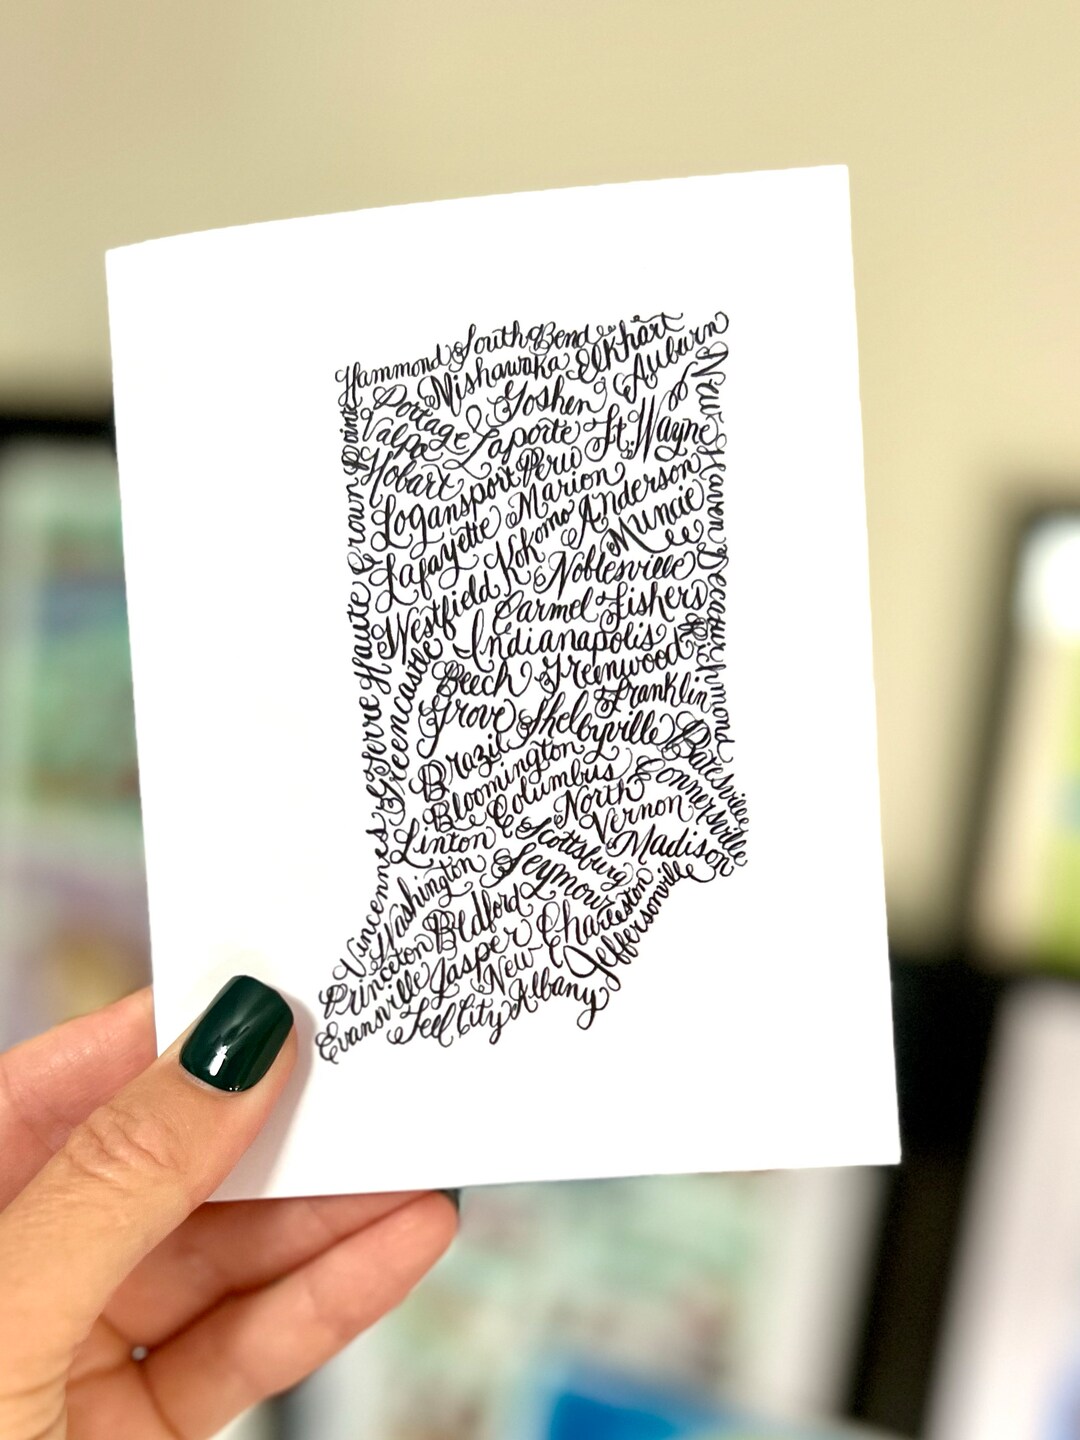 Hammond South Bend Elkhart
Mishawaka Auburn
Portage Goshen
Valpo Laporte Ft. Wayne
Hobart Peru
Logansport Marion Anderson
Lafayette Kokomo Muncie
Westfield Noblesville
Carmel Fishers
Indianapolis
Beech Grove Greenwood
Franklin
Shelbyville
Brazil
Bloomington
Columbus
Linton
North Vernon
Scottsburg Madison
Washington Seymour
Bedford Charleston
Princeton Jasper
Evansville New Albany
Tell City
Jeffersonville
Crown Point
Terre Haute
Greencastle
Vincennes
New Haven
Decatur
Richmond
Batesville
Connersville